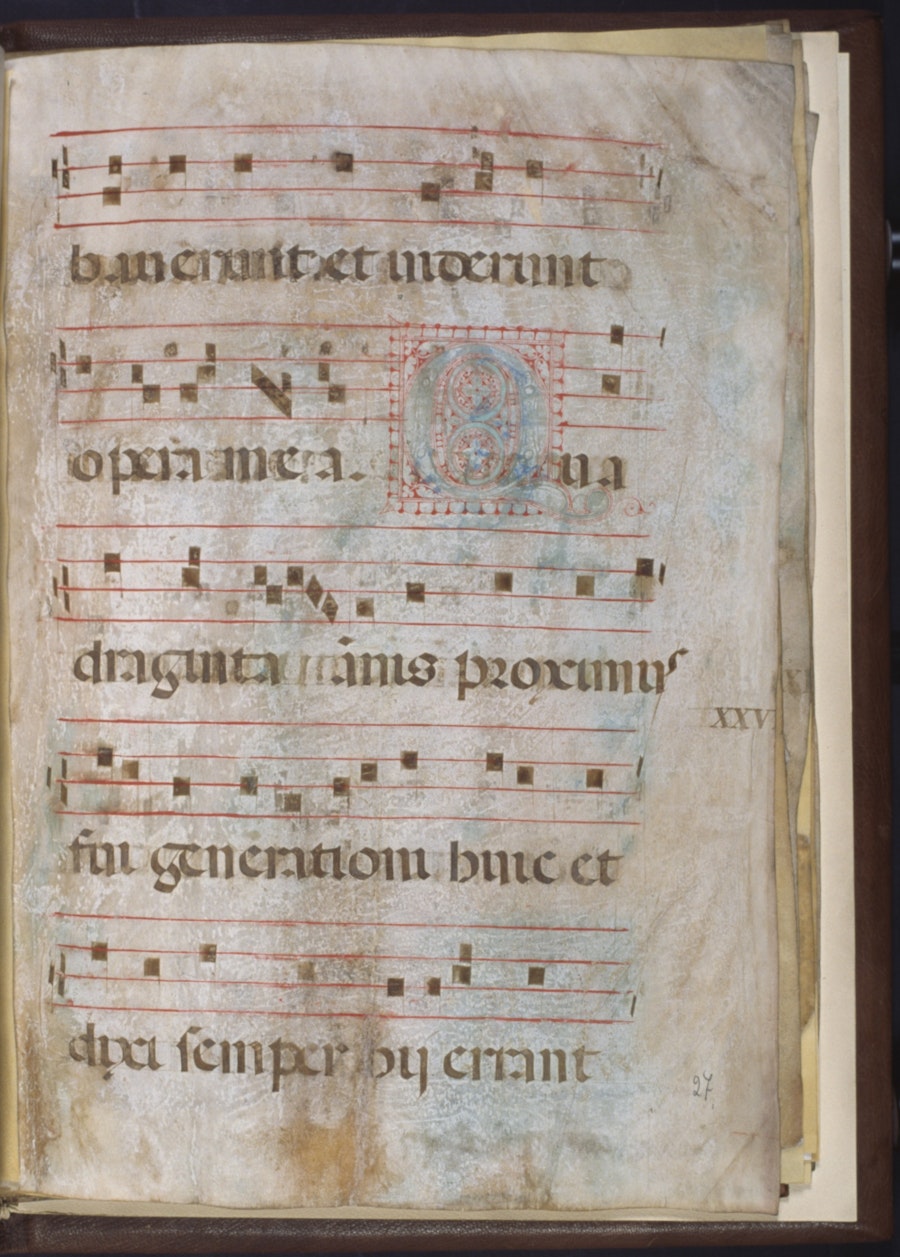 bauerunt: et uiderunt
opera mea. Qua
draginta ānis proximus
fui generationi huic et
XXV
dixi semper hij errant
27